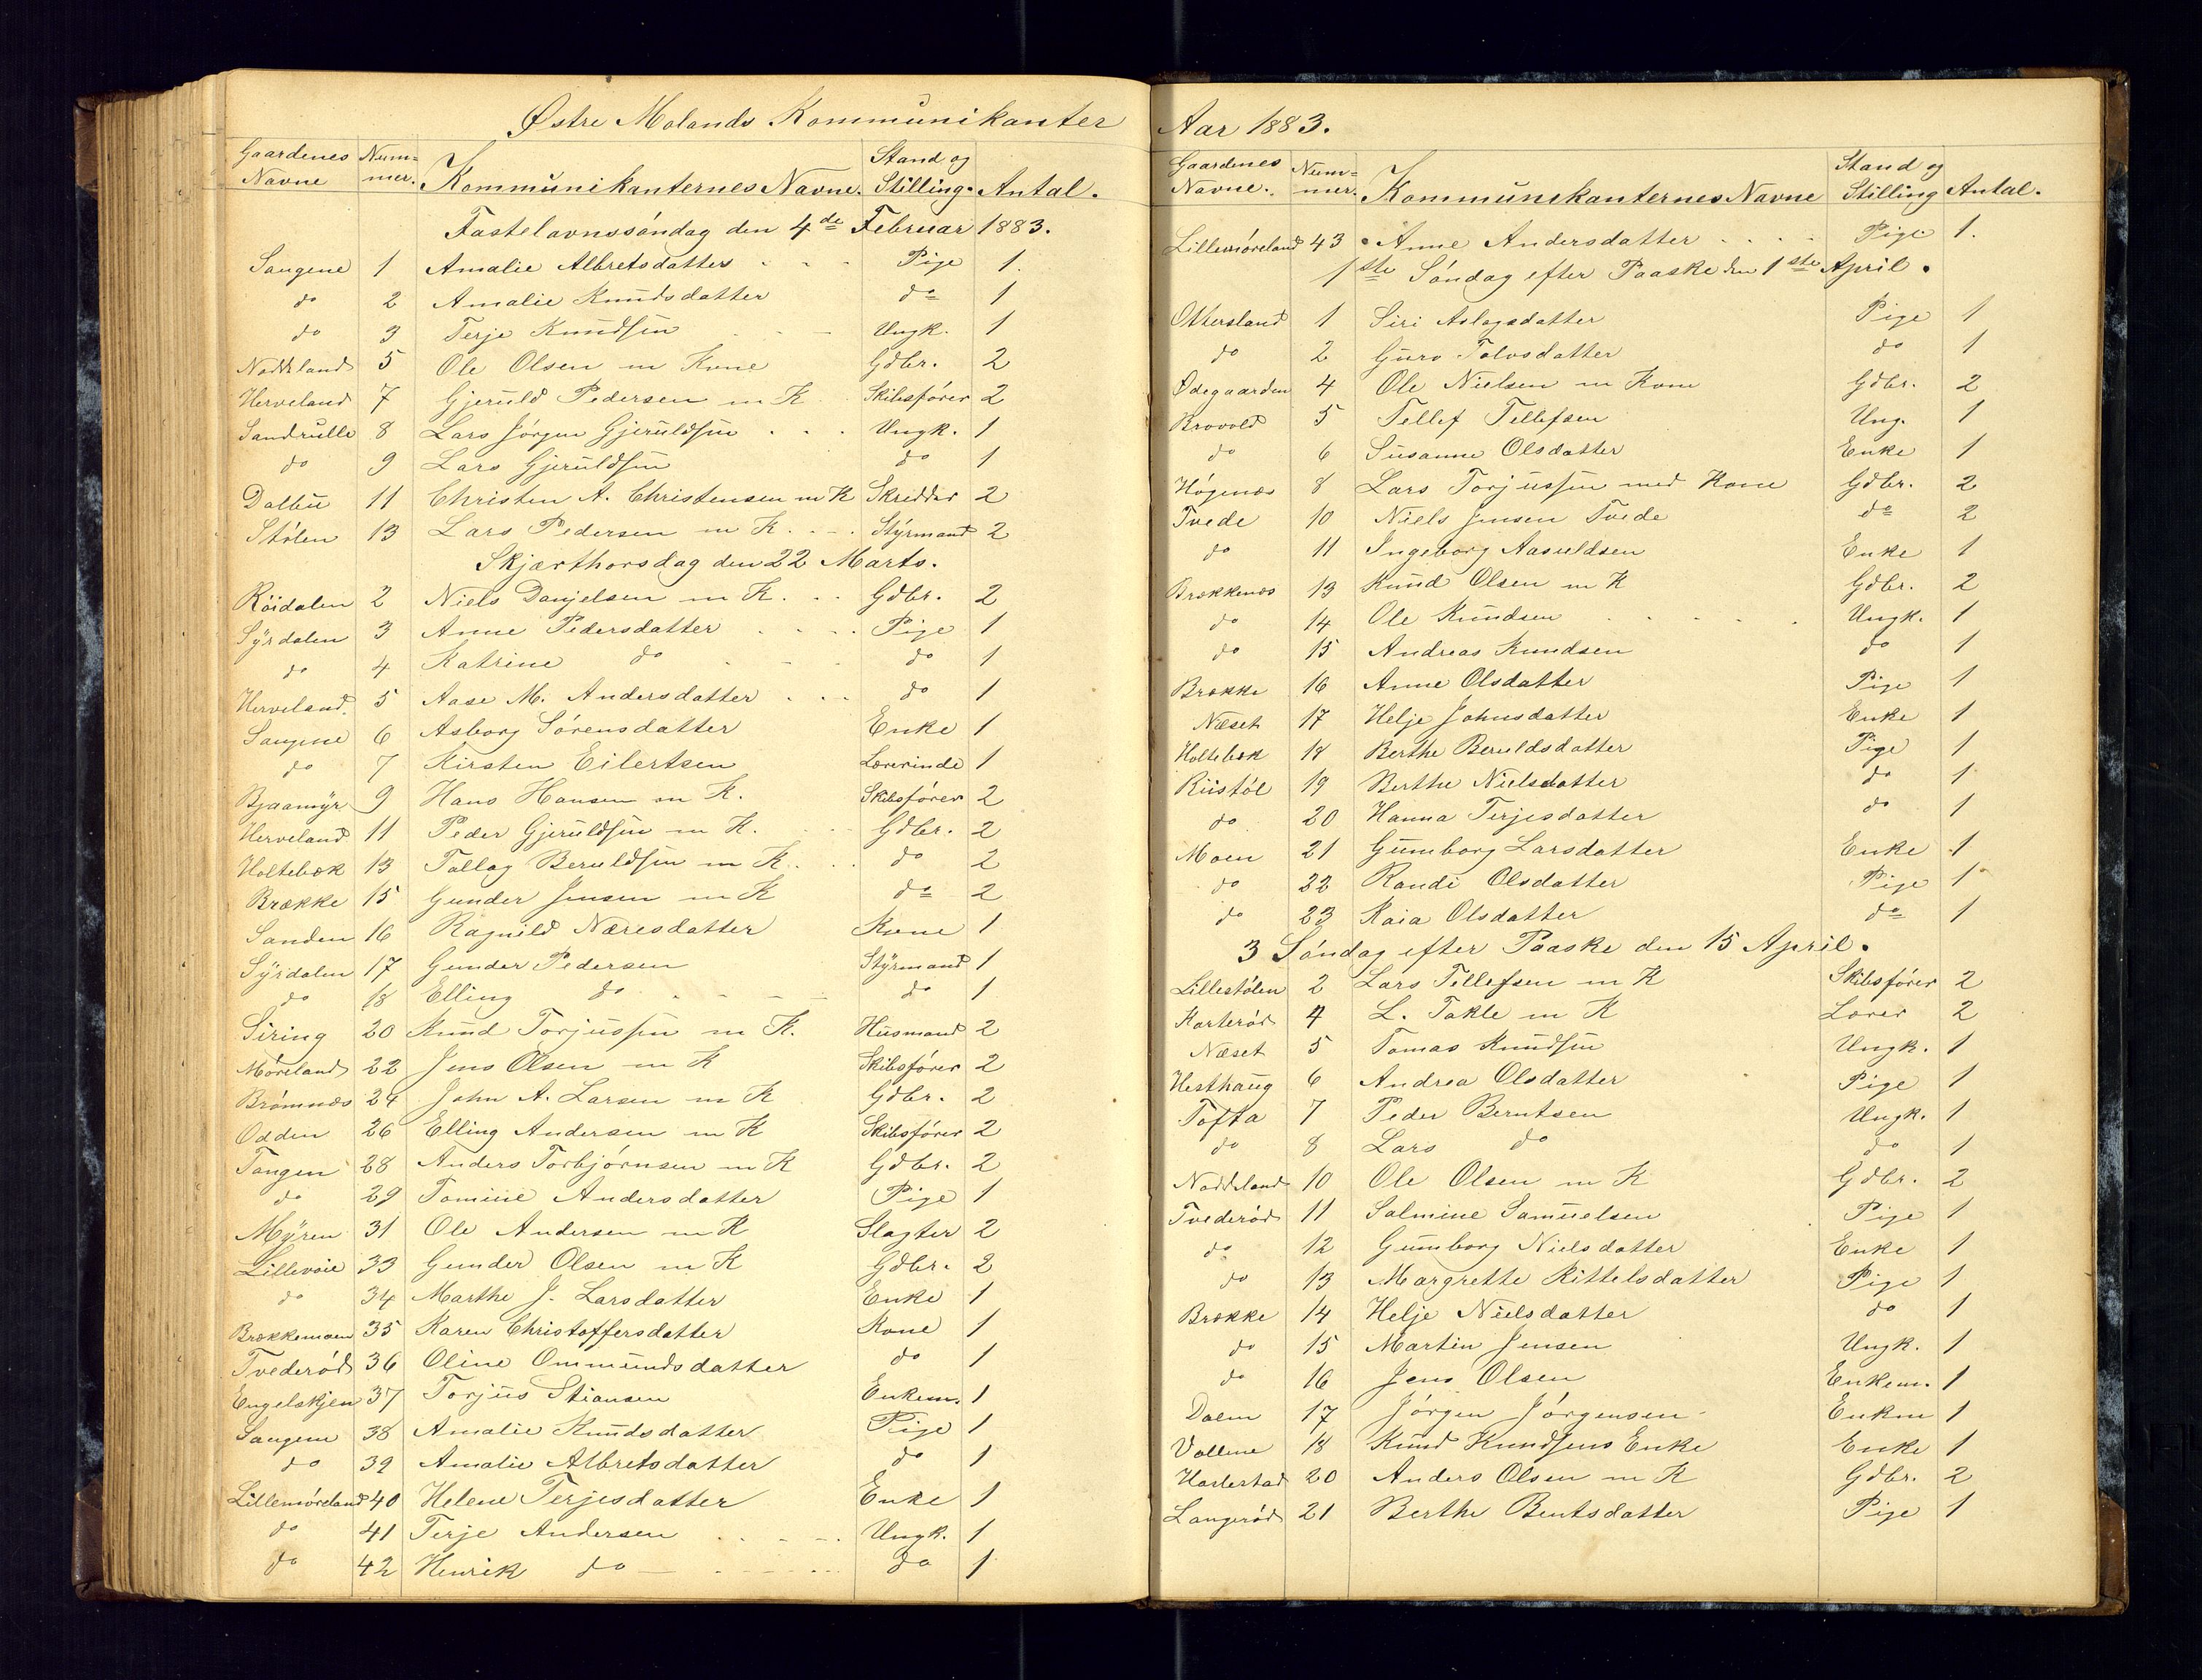 Østre Molands Kommunikanter
Gaardenes Navne Num=mer. Kommunikanternes Navne. Stand og Stilling. Antal.
Fastelavnssøndag den 4de Februar 1883.
Songene 1 Amalie Albretsdatter Pige 1.
do 2 Amalie Knudsdatter do 1
do 3 Terje Knudsen Ungk. 1
Noddeland 5 Ole Olsen m Kone Gdbr. 2
Herveland 7 Gjeruld Pedersen m K Skibsfører 2
Sandrulle 8 Lars Jørgen Gjeruldsen Ungk. 1
do 9 Lars Gjeruldsen do 1
Dalbu 11 Christen A. Christensen m K Skredder 2
Stølen 13 Lars Pedersen m K. Styrmand 2
Skjærthorsdag den 22 Marts.
Röidalen 2 Niels Danjelsen m K. Gdbr. 2
Syrdalen 3 Anne Pedersdatter Pige 1
do 4 Katrine do do 1
Herveland 5 Aase M. Andersdatter do 1
Songene 6 Asborg Sørensdatter Enke 1
do 7 Kirsten Eilertsen Lærerinde 1
Bjaamyr 9 Hans Hansen m K. Skibsfører 2
Herveland 11 Peder Gjeruldsen m K. Gdbr. 2
Holtebæk 13 Tallag Beruldsen m K. do 2
Brække 15 Gunder Jensen m K do 2
Sanden 16 Ragnild Næresdatter Kone 1
Syrdalen 17 Gunder Pedersen Styrmand 1
do 18 Elling do do 1
Siring 20 Knud Torjussen m K. Husmand 2
Møreland 22 Jens Olsen m K Skibsfører 2
Brømnes 24 John A. Larsen m K Gdbr. 2
Odden 26 Elling Andersen m K Skibsfører 2
Tangen 28 Anders Torbjørnsen m K Gdbr. 2
do 29 Tomine Andersdatter Pige 1
Myren 31 Ole Andersen m K Slagter 2
Lillevoie 33 Gunder Olsen m K Gdbr. 2
do 34 Marthe J. Larsdatter Enke 1
Brækkemoen 35 Karen Christoffersdatter Kone 1
Tvederød 36 Oline Ommundsdatter do 1
Engelskjen 37 Torjus Stiansen Enkem. 1
Songene 38 Amalie Knudsdatter Pige 1
do 39 Amalie Albretsdatter do 1
Lillemøreland 40 Helene Terjesdatter Enke 1
do 41 Terje Andersen Ungk. 1
do 42 Henrik do do 1
Aar 1883.
Gaardenes Navne. Num=mer. Kommunikanternes Navne Stand og Stilling Antal.
Lillemøreland 43 Anne Andersdatter Pige 1.
1ste Søndag efter Paaske den 1ste April.
Ottersland 1 Siri Aslagsdatter Pige 1
do 2 Guro Tolvsdatter do 1
Ødegaarden 4 Ole Nielsen m Kone Gdbr. 2
Brovold 5 Tellef Tellefsen Ung. 1
do 6 Susanne Olsdatter Enke 1
Høgenæs 8 Lars Torjussen med Kone Gdbr. 2
Tvede 10 Niels Jensen Tvede do 2
do 11 Ingeborg Aasuldsen Enke 1
Brækkenes 13 Knud Olsen m K Gdbr. 2
do 14 Ole Knudsen Ungk. 1
do 15 Andreas Knudsen do 1
Brække 16 Anne Olsdatter Pige 1
Næset 17 Helje Johnsdatter Enke 1
Holtebæk 18 Berthe Beruldsdatter Pige 1
Riistøl 19 Berthe Nielsdatter do 1
do 20 Hanna Terjesdatter do 1
Moen 21 Gumborg Larsdatter Enke 1
do 22 Randi Olsdatter Pige 1
do 23 Kaia Olsdatter do 1
3 Søndag efter Paaske den 15 April.
Lillestølen 2 Lars Tellefsen m K Skibsfører 2
Karterød 4 L. Takle m K Lærer 2
Næset 5 Tomas Knudsen Ungk. 1
Hesthaug 6 Andrea Olsdatter Pige 1
Tofta 7 Peder Berntsen Ungk. 1
do 8 Lars do do 1
Noddeland 10 Ole Olsen m K Gdbr. 2
Tvederød 11 Salmine Samuelsen Pige 1
do 12 Gumborg Nielsdatter Enke 1
do 13 Margrette Kittelsdatter Pige 1
Brække 14 Helje Nielsdatter do 1
do 15 Martin Jensen Ungk. 1
do 16 Jens Olsen Enkem. 1
Dalen 17 Jørgen Jørgensen Enkm 1
Vollene 18 Knud Knudsens Enke Enke 1
Harlestad 20 Anders Olsen m K Gdbr. 2
Langerød 21 Berthe Bentsdatter Pige 1